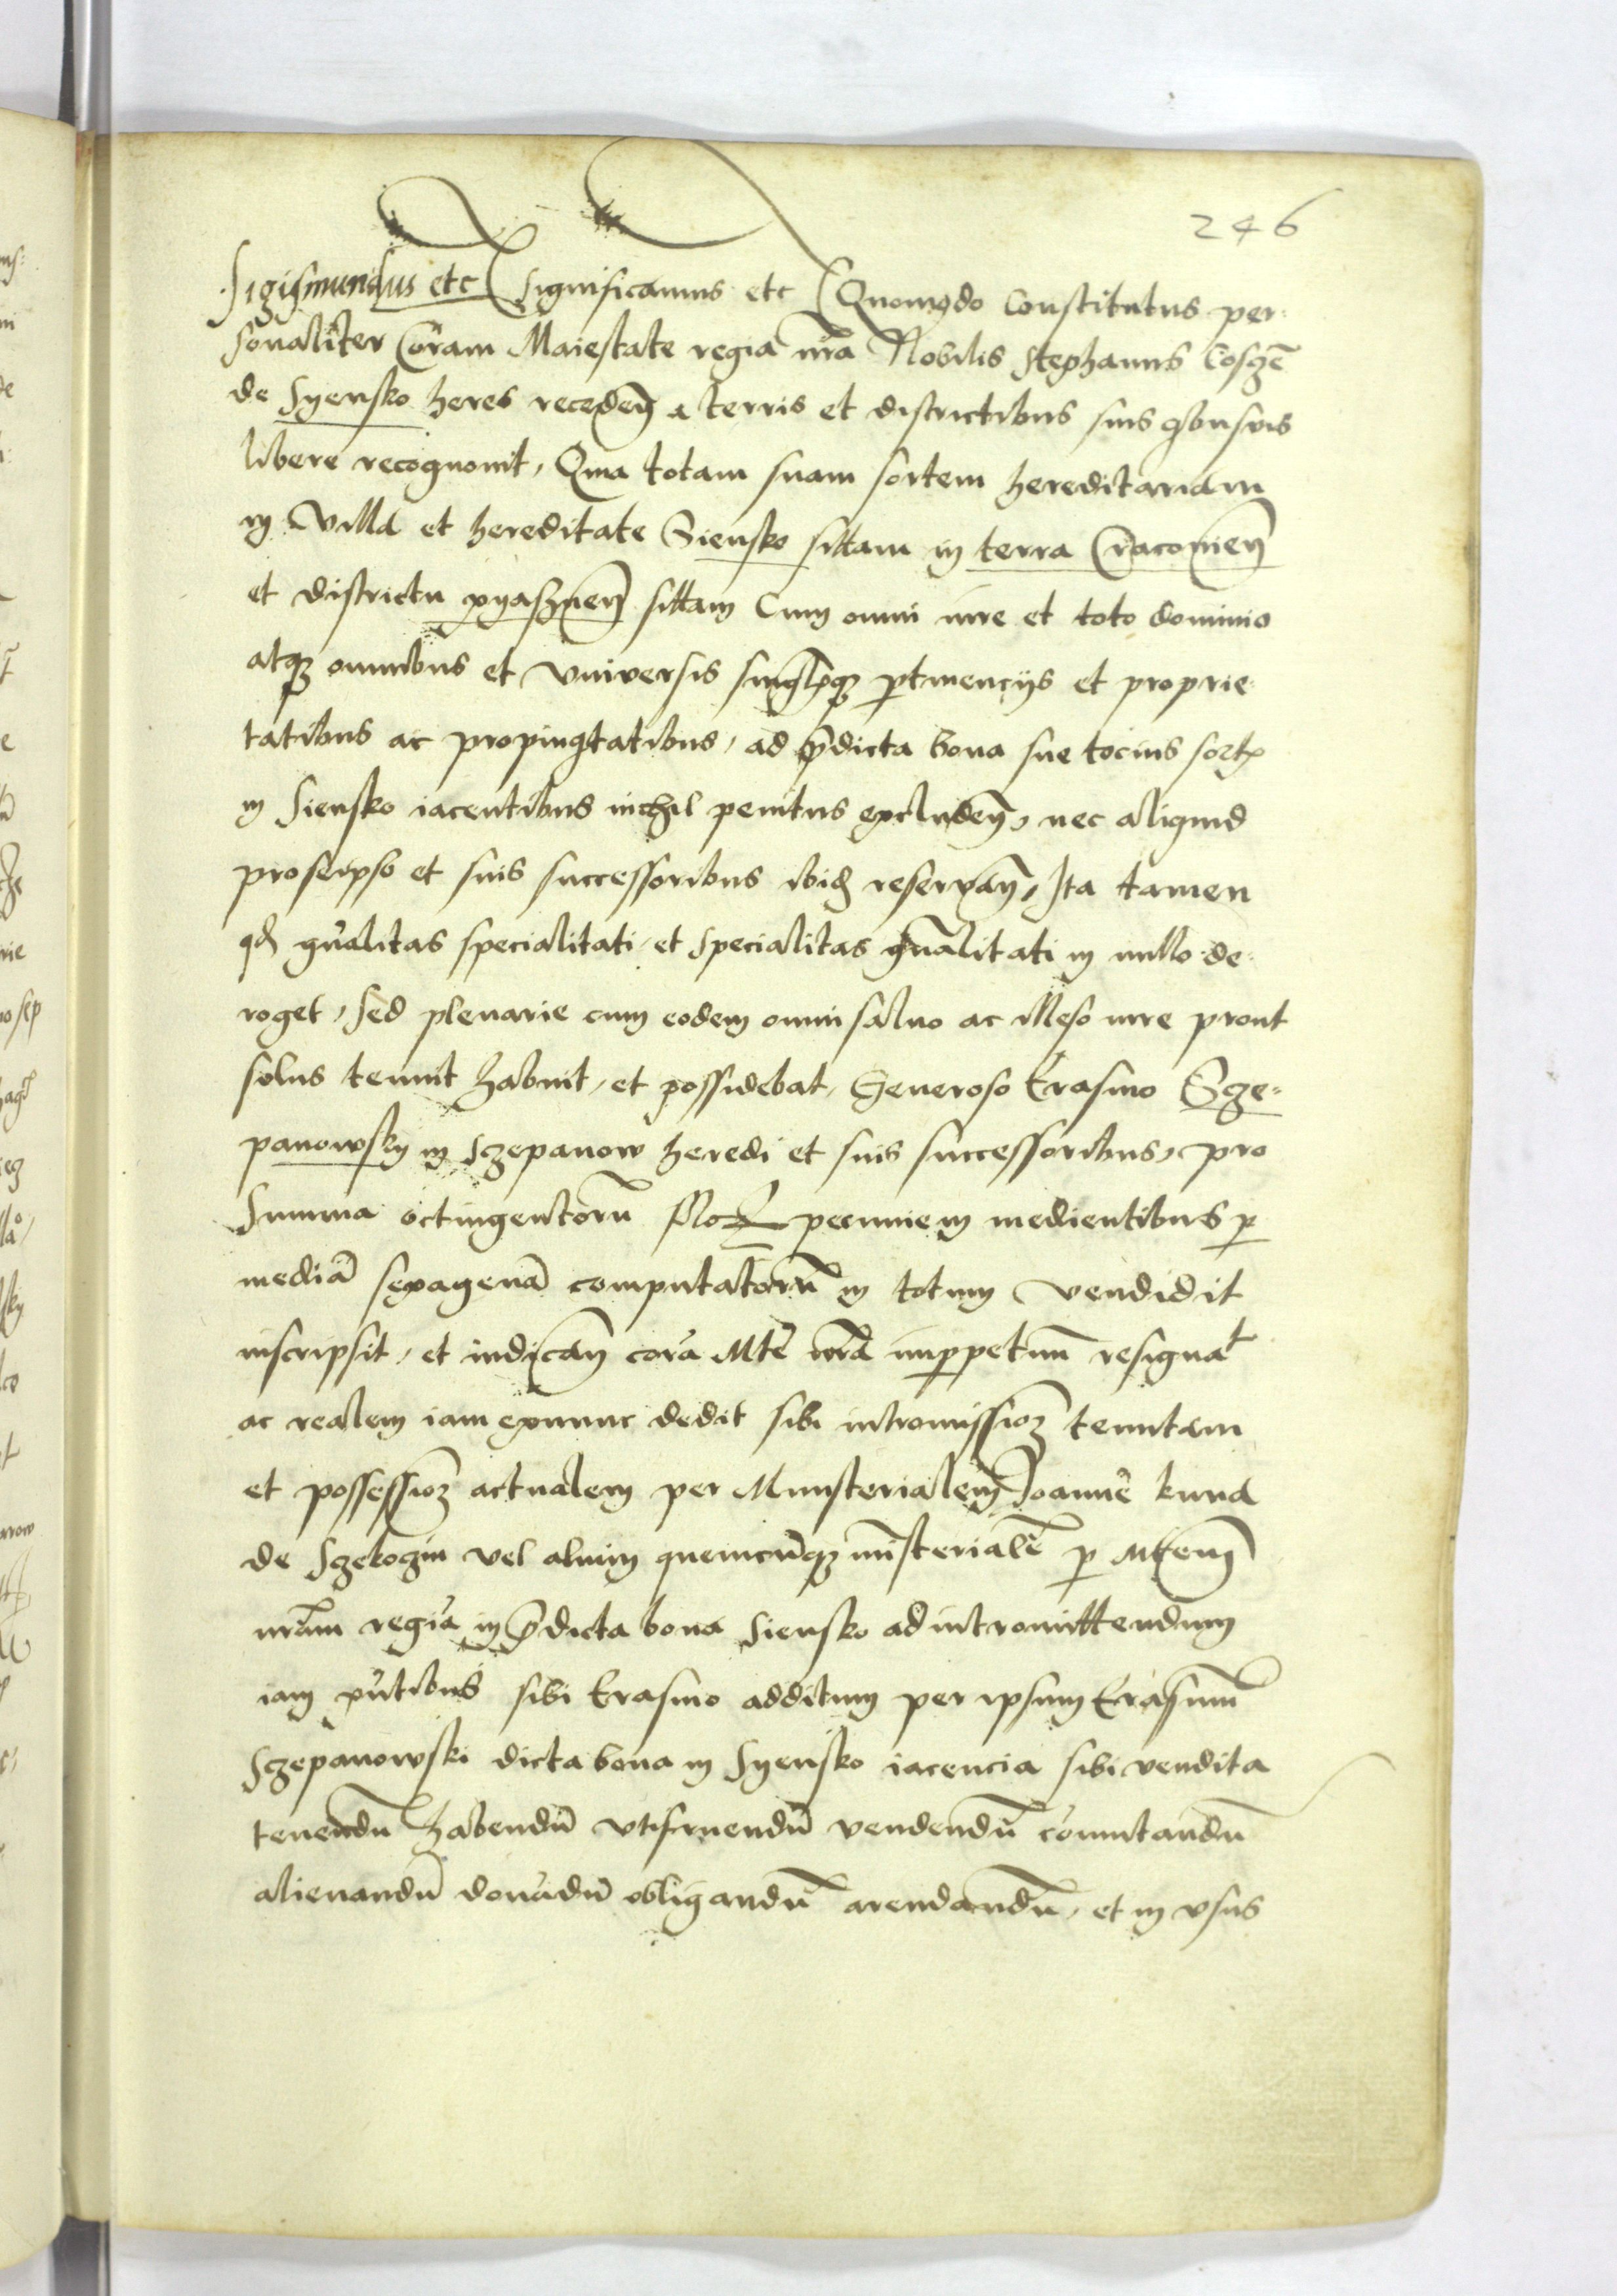 246
Sigismundus etc Significamus etc Quomodo Constitutus per-
sonaliter Coram Maiestate regia nr̃a Nobilis Stephanus Cosgē
de Syensko heres receden̄ a terris et districtibus suis qbusvis
libere recognovit, Quia totam suam sortem hereditariam
in villa et hereditate Siensko sittam in terra Cracovien̄
et districtu xyąsznen̄ sittam Cum omni iure et toto dominio
atqꝫ omnibus et vniversis singlisqꝫ ꝑtinencijs et proprie-
tatibus ac propinq̄tatibus, ad p̄dicta bona sue tocius sortis
in Siensko iacentibus nichil penitus excluden̄, nec aliquid
pro seipso et suis successoribus ibid̄ reservan̄, Ita tamen
qd̄ gn̄alitas specialitati, et specialitas gn̄alitati in nullo de-
roget, Sed plenarie cum eodem omni salvo ac illeso iure prout
solus tenuit habuit, et possidebat, Generoso Erasmo Scze-
panowsky in Sczepanow heredi et suis successoribus, pro
Summa octingentorū floꝝ pecunie in medientibus ꝑ
mediā sexagenā computatorū in totum vendidit
inscripsit, et iudican̄ corā Mte nr̃a imꝑpetuum resignat
ac realem iam exnunc dedit sibi intromissioꝫ tenutam
et possessioꝫ actualem per Ministerialem Joannē kuna
de Szekogin vel alium quemcūqꝫ mīsterialē ꝑ Mtem
nr̃am regiā in p̄dicta bona Siensko ad intromittendum
iam pn̄tibus sibi Erasmo additum per ipsum Erasmum
Sczepanowski dicta bona in Syensko iacencia sibi vendita
tenendū habendū vtifruendū vendendū cōmutandū
alienandū donādū obligandū arendandū, et in vsus